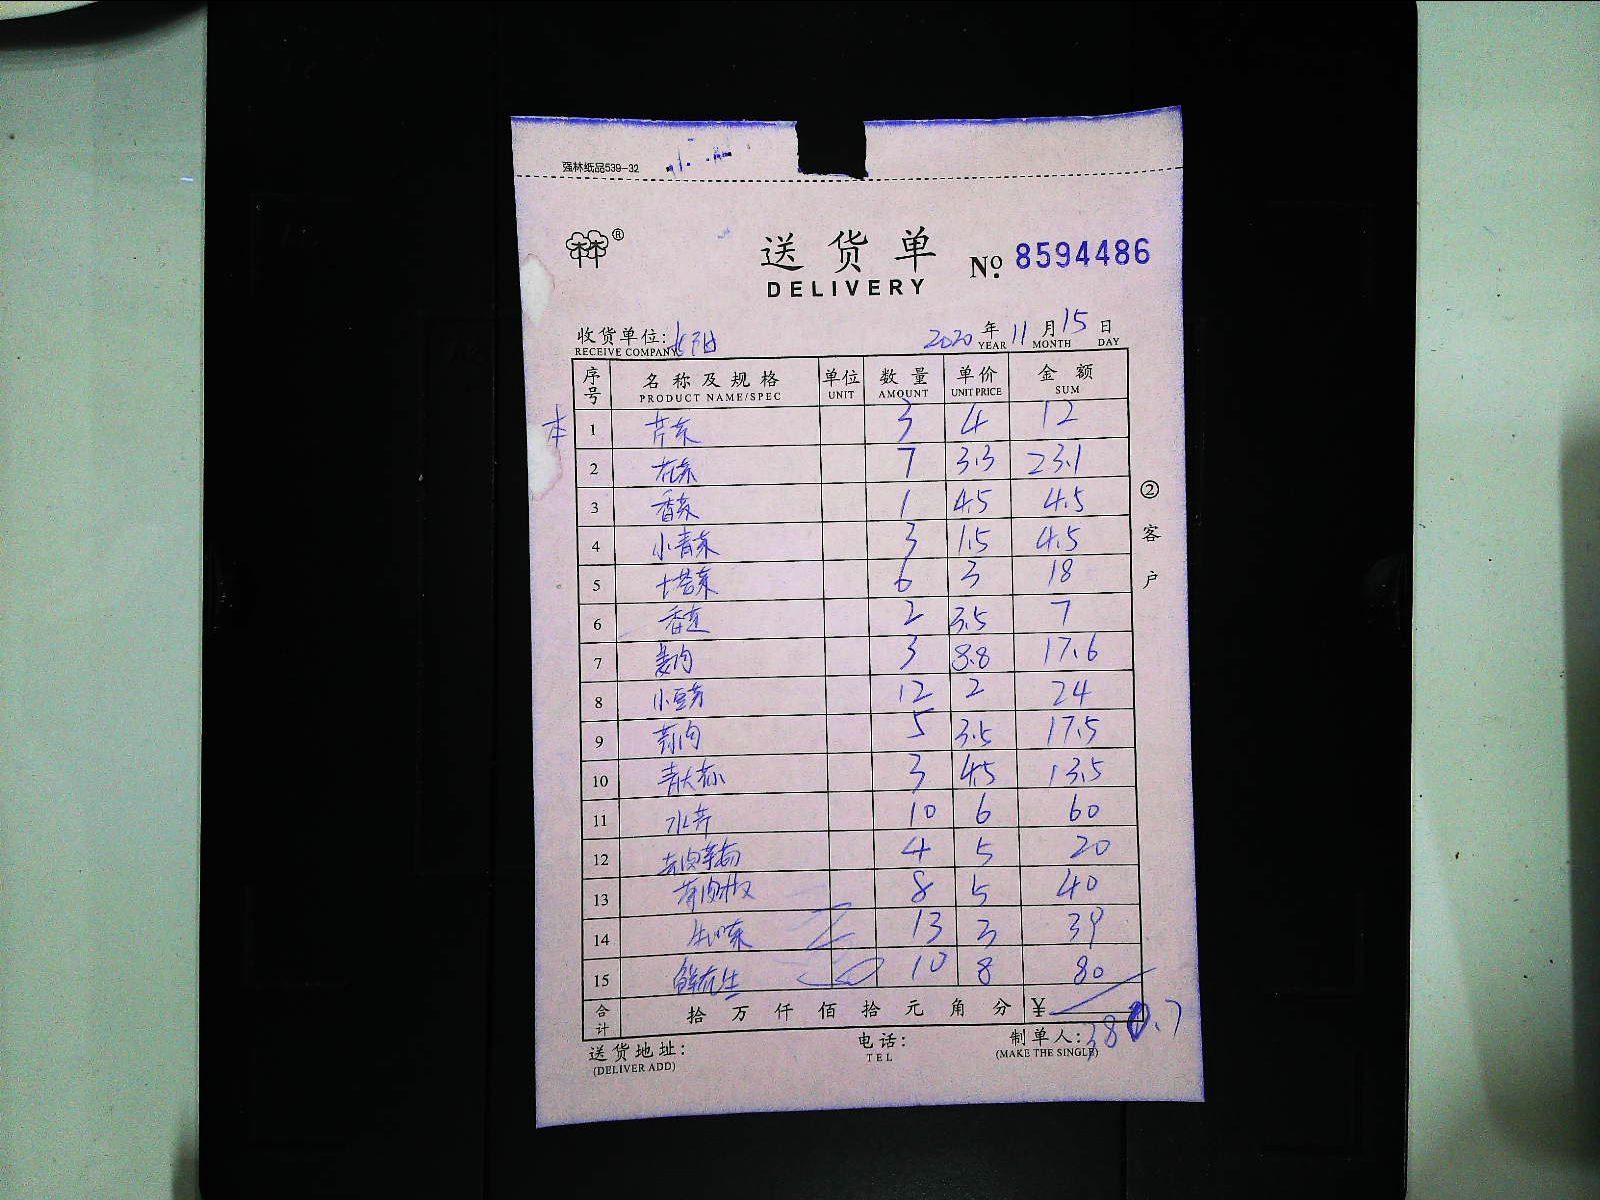 强林纸品539-32
®
送货单
DELIVERY
№ 8594486
收货单位:
RECEIVE COMPANY
2020年11月15日
YEAR MONTH DAY
序号 名称及规格 单位 数量 单价 金额
PRODUCT NAME/SPEC UNIT AMOUNT UNIT PRICE SUM
本 1 芹菜 3 4 12
2 花菜 7 3.3 23.1
3 香菜 1 4.5 4.5
4 小青菜 3 1.5 4.5
5 塔菜 6 3 18
6 香芝 2 3.5 7
7 姜肉 3 8.8 17.6
8 小豆芽 12 2 24
9 蒜肉 5 3.5 17.5
10 青大蒜 3 4.5 13.5
11 水芹 10 6 60
12 4 5 20
13 8 5 40
14 生菜 13 3 39
15 鲜花生 10 8 80
合计 拾 万 仟 佰 拾 元 角 分 ¥ 380.7
送货地址:
(DELIVER ADD)
电话:
TEL
制单人:
(MAKE THE SINGLE)
②客户